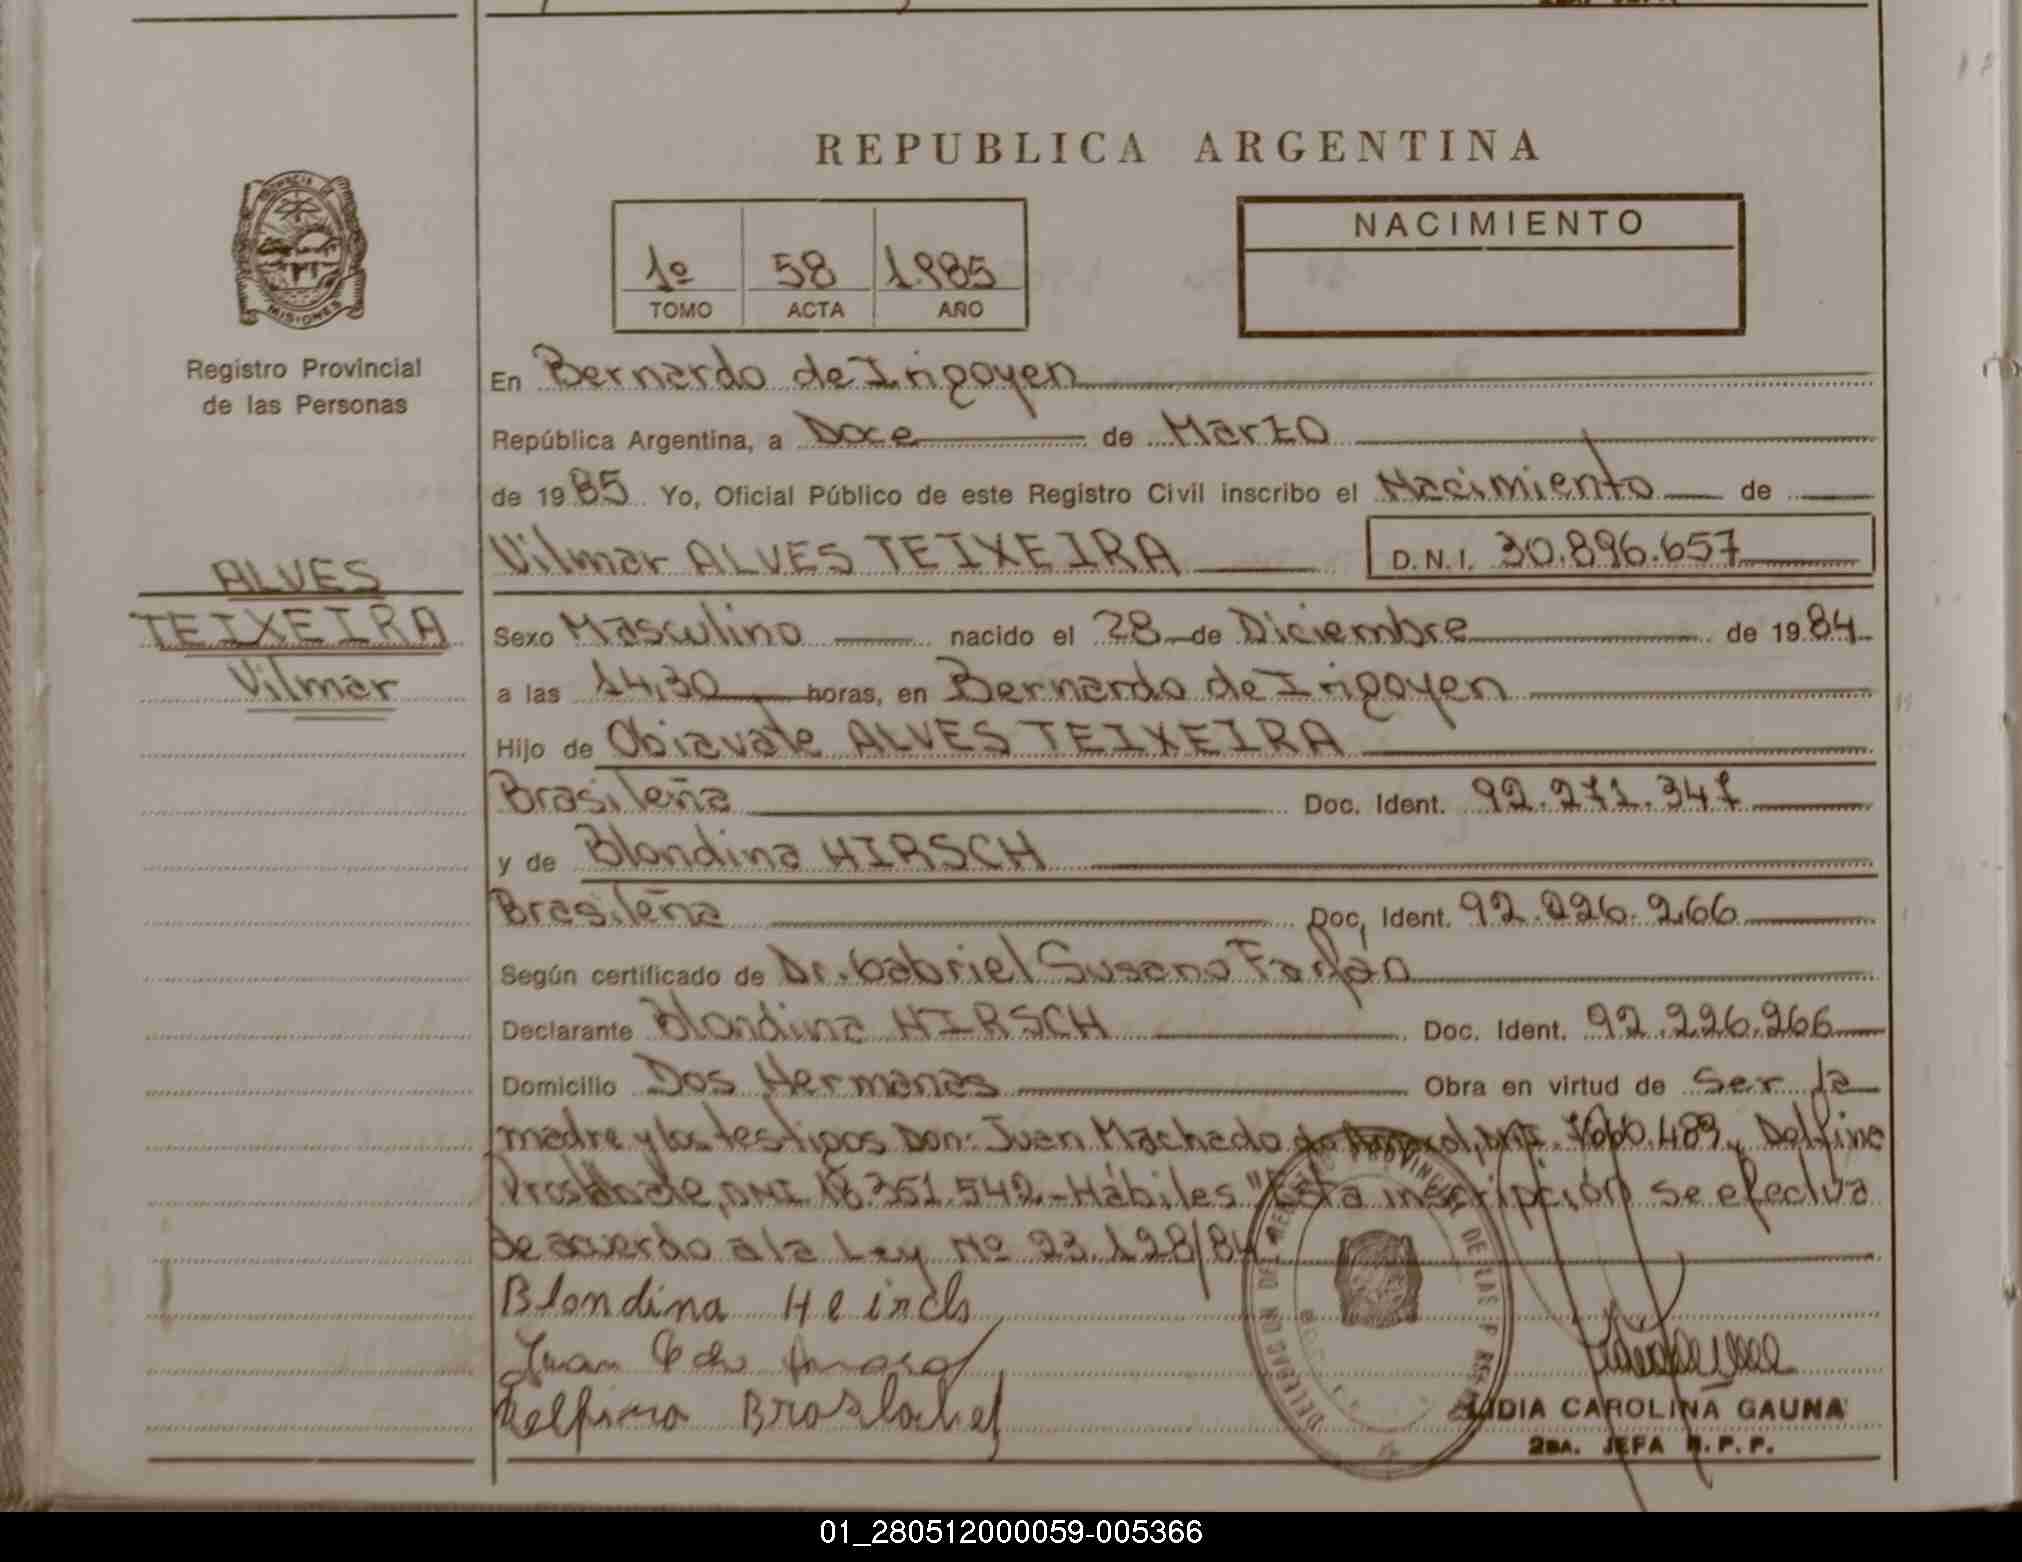 REPUBLICA ARGENTINA
PROVINCIA DE
MISIONES
Registro Provincial
de las Personas
1º 58 1.985
TOMO ACTA AÑO
NACIMIENTO
En Bernardo de Irigoyen
República Argentina, a Doce de Marzo
de 1985 Yo, Oficial Público de este Registro Civil inscribo el Nacimiento de
Vilmar ALVES TEIXEIRA D.N.I. 30.896.657
ALVES
TEIXEIRA
Vilmar
Sexo Masculino nacido el 28 de Diciembre de 1984
a las 14,30 horas, en Bernardo de Irigoyen
Hijo de Obiavate ALVES TEIXEIRA
Brasileña Doc. Ident. 92.271.347
y de Blondina HIRSCH
Brasileña Doc. Ident. 92.026.266
Según certificado de Dr. Gabriel Susano Farfán
Declarante Blondina HIRSCH Doc. Ident. 92.226.266
Domicilio Dos Hermanas Obra en virtud de Ser la
madre y los testigos Don: Juan Machado do DNI Delfino
DNI 18.351.542.- Hábiles "Esta inscripción se efectua
de acuerdo a la Ley Nº 23.128/84
Blondina Heirch
Juan
Delfino
LIDIA CAROLINA GAUNA
2DA. JEFA R.P.P.
01_280512000059-005366